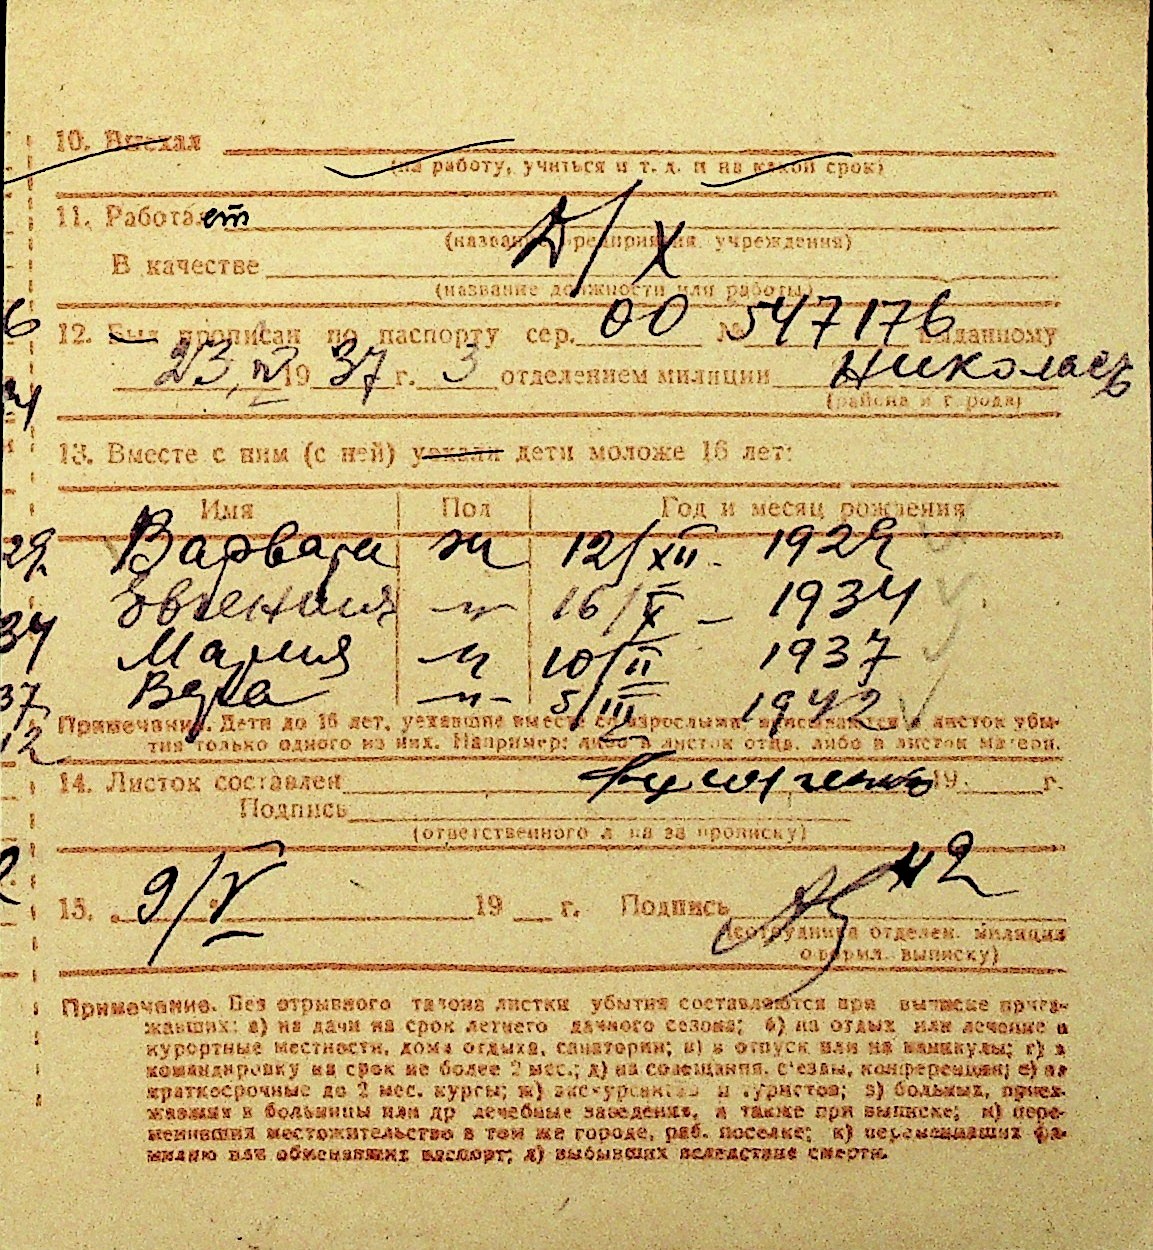 10. Выехал
(на работу, учиться и т. д. и на какой срок)
11. Работает Д/Х
(название предприятия, учреждения)
В качестве
(название должности или работы)
12. Был прописан по паспорту сер. 00 № 547176 выданному
23, 1937 г. 3 отделением милиции Николаев
(района и города)
13. Вместе с ним (с ней) уехали дети моложе 16 лет:
Имя Пол Год и месяц рождения
29. Варвара ж 12/XII - 1929
34 Евгения -"- 16/X - 1934
37 Мария -"- 10/II 1937
12 Вера -"- 5/III 1942
Примечание. Дети до 16 лет, уехавшие вместе со взрослыми, вписываются в листок убы-
тия только одного из них. Например: либо в листок отца, либо в листок матери.
14. Листок составлен 19 г.
Подпись
(ответственного лица за прописку)
15. 9/V 19 г. Подпись 42
(сотрудника отделен. милиции
оформл. выписку)
Примечание. Без отрывного талона листки убытия составляются при выписке приез-
жавших: а) на дачи на срок летнего дачного сезона; б) на отдых или лечение в
курортные местности, дома отдыха, санатории; в) в отпуск или на каникулы; г) в
командировку на срок не более 2 мес.; д) на совещания, съезды, конференции; е) на
краткосрочные до 2 мес. курсы; ж) экскурсантов и туристов; з) больных, приез-
жавших в больницы или др лечебные заведения, а также при выписке; и) пере-
менивших местожительство в том же городе, раб. поселке; к) переменивших фа-
милию или обменявших паспорт; л) выбывших вследствие смерти.